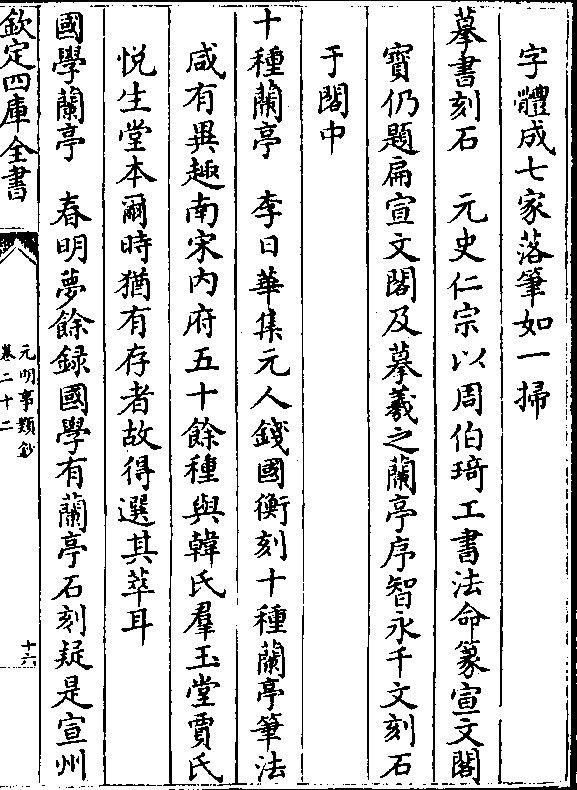 字體成七家落筆如一掃
摹書刻石　元史仁宗以周伯琦工書法命篆宣文閣
寶仍題扁宣文閣及摹羲之蘭亭序智永千文刻石
于閣中
十種蘭亭　李日華集元人錢國衡刻十種蘭亭筆法
咸有異趣南宋内府五十餘種與韓氏羣玉堂賈氏
悦生堂本爾時猶有存者故得選其萃耳
國學蘭亭　春明夢餘録國學有蘭亭石刻疑是宣州
欽定四庫全書
元明事類鈔
卷二十二
十六